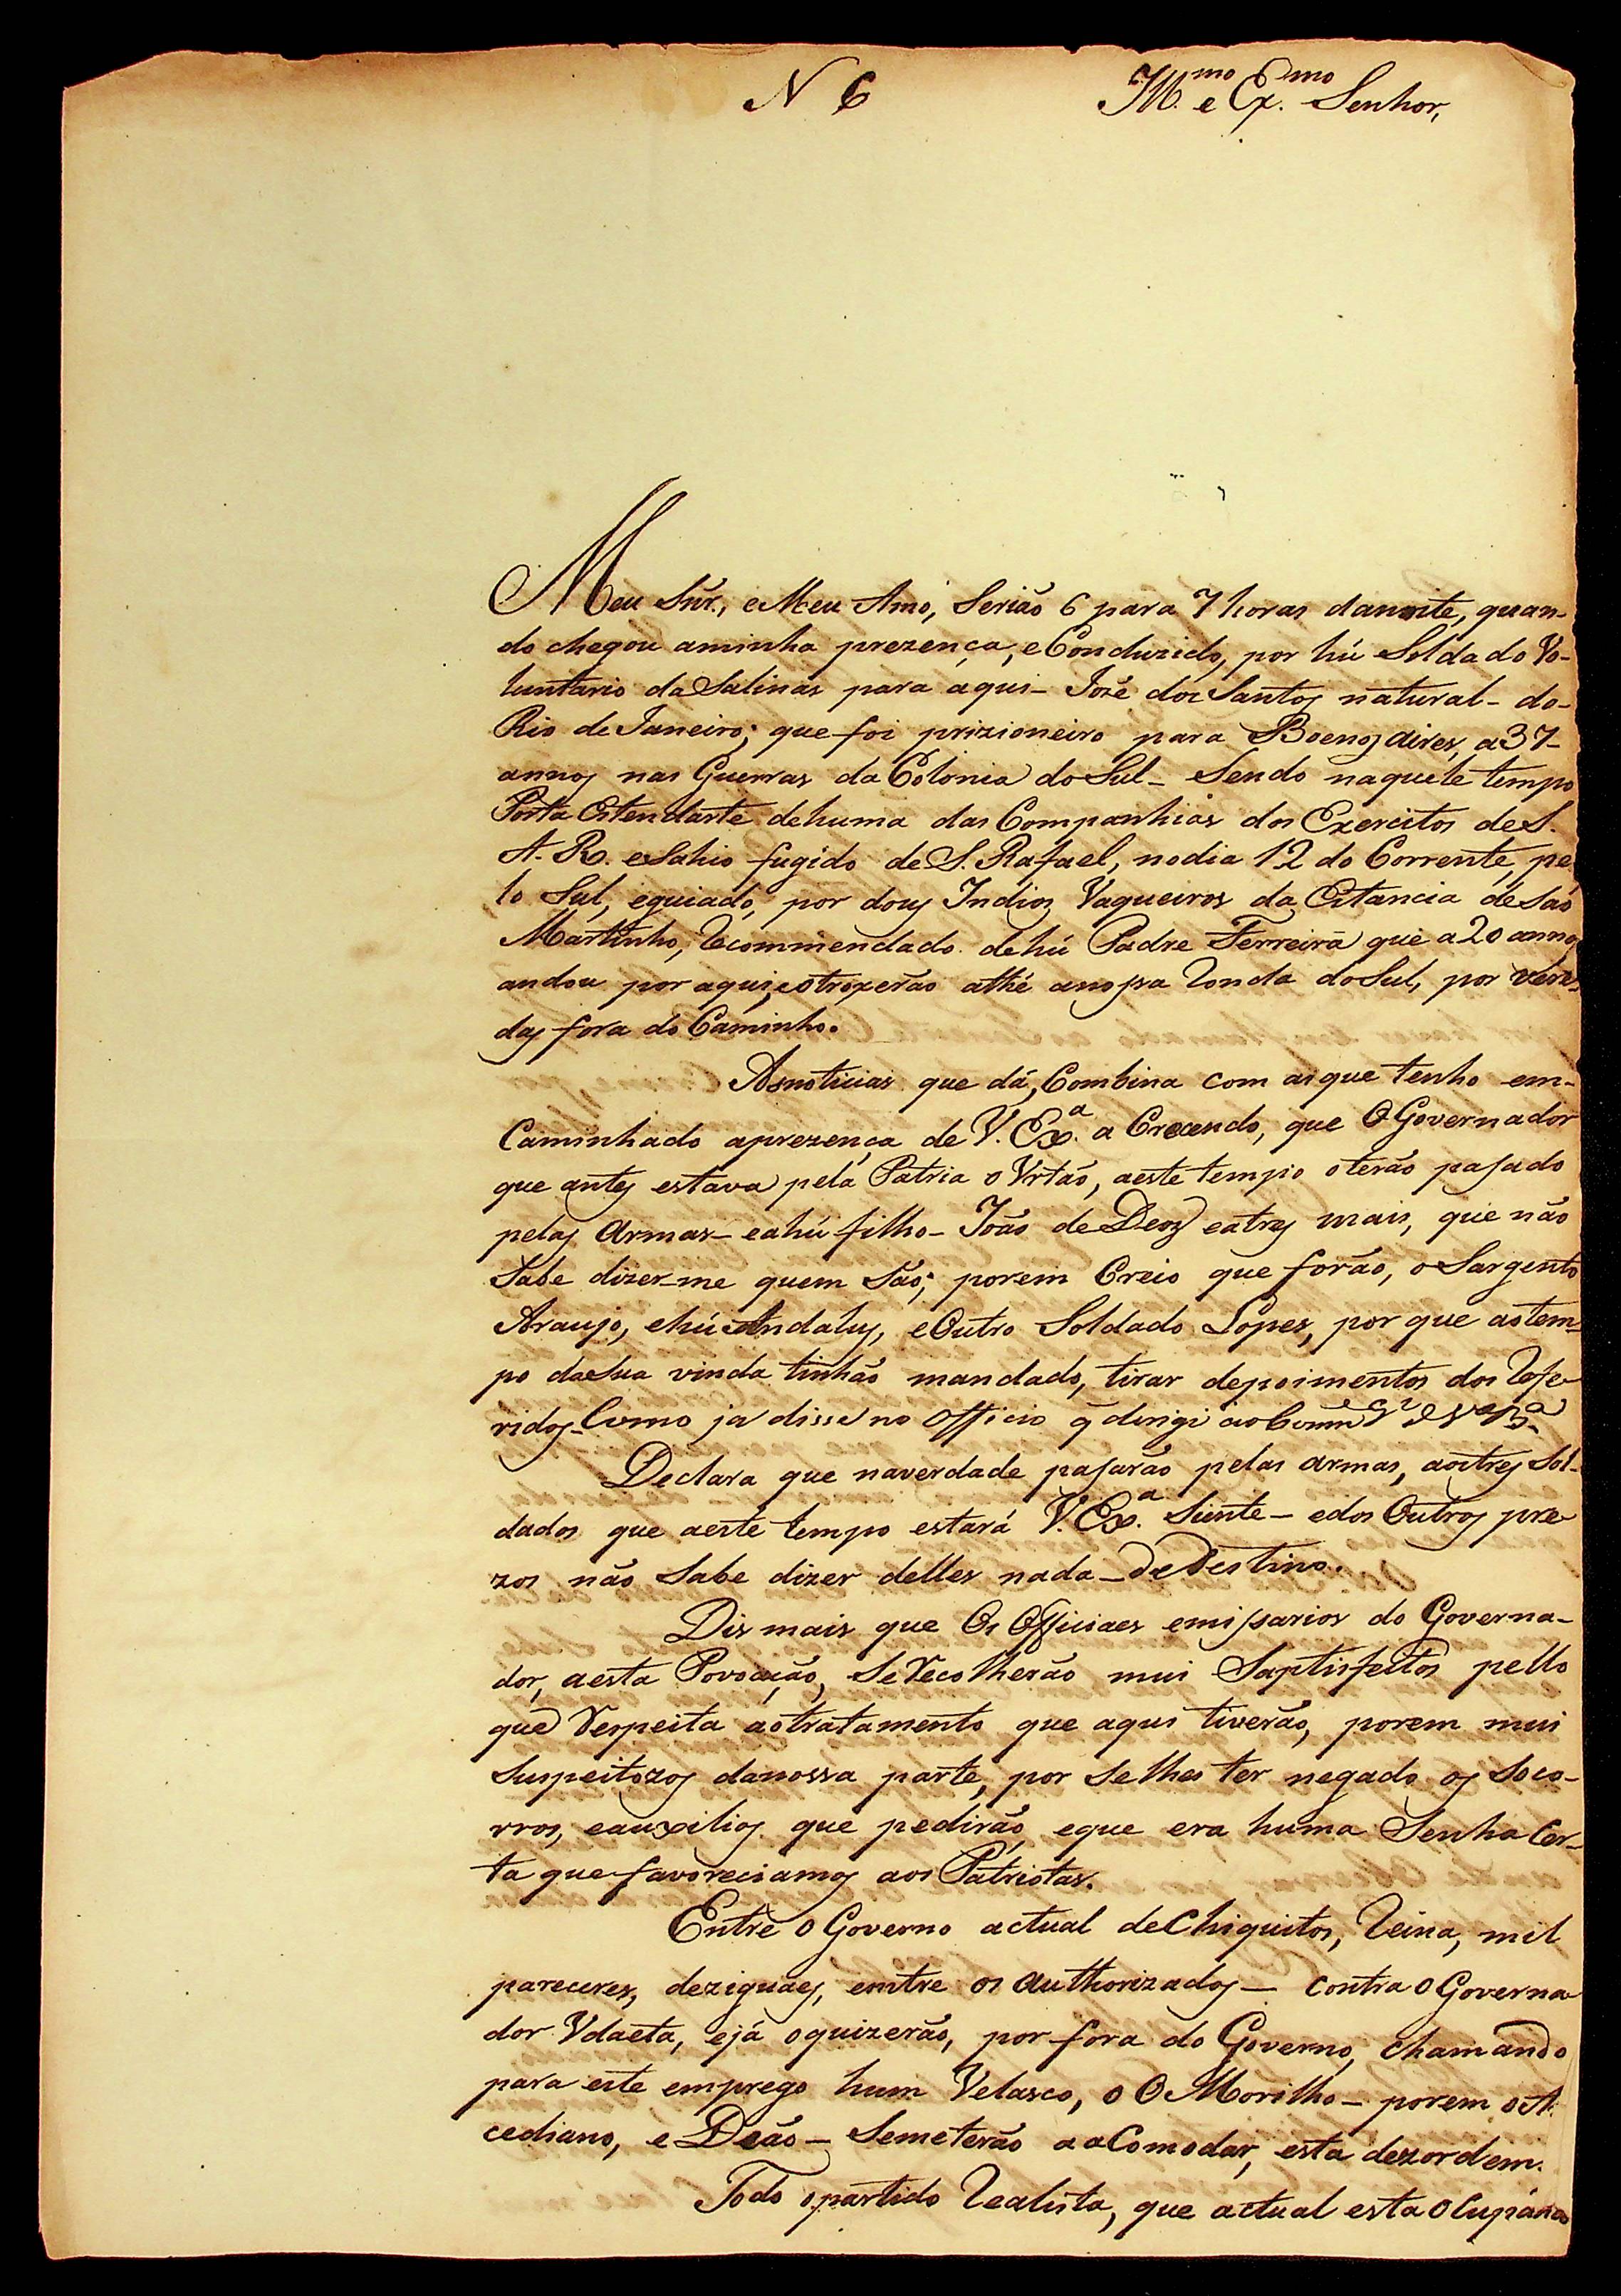 N 6
Ill.mo e Ex.mo Senhor,
Meu Snr., e Meu Amo, Serião 6 para 7 horas danoite, quan-
do chegou aminha prezença, e Conduzido, por hũ Soldado Vo-
luntario da Salinas para aqui - Jozé dos Santos natural - do -
Rio de Janeiro; que foi prizioneiro para Boenos aires, a 37 -
annos nas Guerras da Colonia do Sul - Sendo naquele tempo
Porta Estendarte dehuma das Companhias dos Exercitos de S.
A. R. e Sahio fugido de S. Rafael, nodia 12 do Corrente, pe
lo Sul, eguiado, por dous Indios Vaqueiros da Estancia de São
Martinho, Recommendado dehũ Padre Ferreira que a 20 annos
andou por aqui, eotroxerão athé anossa Ronda do Sul, por vere-
das fora do Caminho.
Asnoticias que dá, Combina com as que tenho em-
Caminhado aprezença de V. Ex.a a Crecendo, que O Governador
que antes estava pela Patria o Vrtão, aeste tempo oterão pasado
pelas Armas - eahũ filho - João de Deos eatres mais, que não
Sabe dizer-me quem São; porem Creio que forão, o Sargento
Araujo, ehũ Andaluz, eOutro Soldado Lopes, por que aotem-
po dasua vinda tinhão mandado, tirar depoimentos dos Refe
ridos - Como ja disse no Officio q̃ dirigi ao
Declara que naverdade pasarão pelas armas, aostres Sol-
dados que aeste tempo estará V. Ex.a Siente - edos Outros pre
zos não Sabe dizer delles nada - de Destino.
Dis mais que Os Officiaes emissarios do Governa-
dor, aesta Povoação, Se Recolherão mui Saptisfeitos pello
que Respeita aotratamento que aqui tiverão, porem mui
Suspeitozos danossa parte, por Selhes ter negado os Soco-
rros, eauxilios que pedirão, eque era huma Senha Cer-
ta que favoreciamos aos Patriotas.
Entre o Governo actual de Chiquitos, Reina, mil
pareceres, deziguaes, emtre os Authorizados - contra o Governa
dor Vdaeta, ejá oquizerão, por fora do Governo, chamando
para este emprego hum Velasco, o O Morilho - porem o A.
cediano, e Deão - Semeterão a aComodar, esta dezordem.
Todo opartido Realista, que actual esta Ocupando